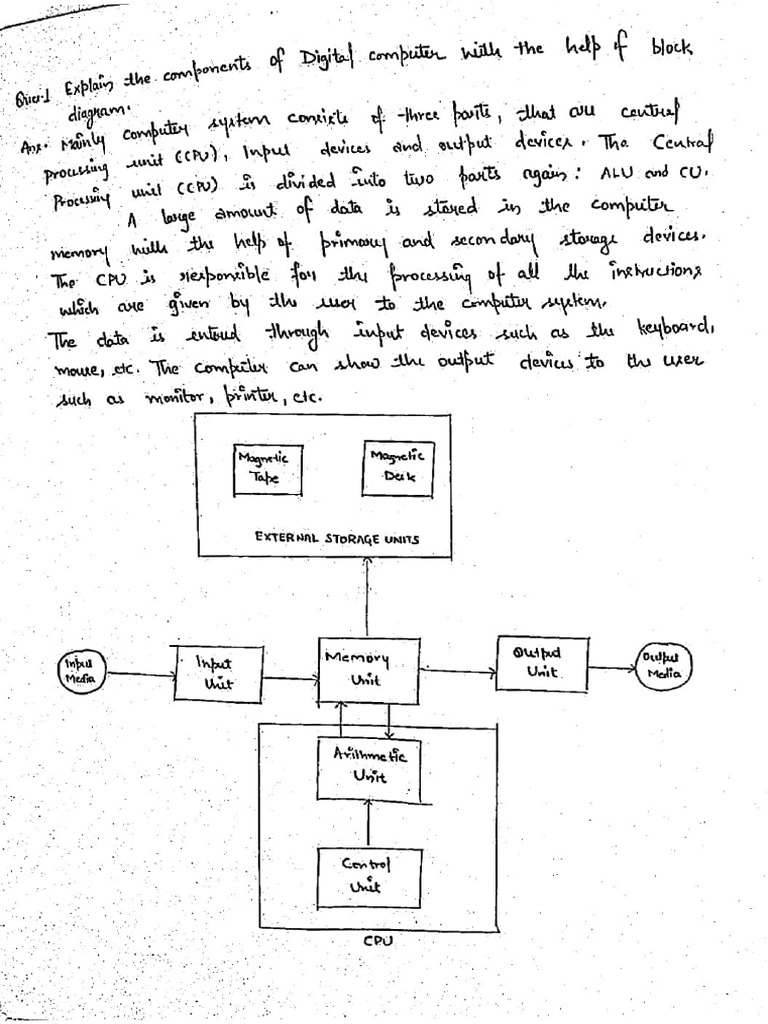 Ques.1 Explain the components of Digital computer with the help of block
diagram.
Ans. Mainly computer system consists of three parts, that are central
processing unit (CPU), Input devices and output devices. The Central
Processing unit (CPU) is divided into two parts again: ALU and CU.
A large amount of data is stored in the computer
memory with the help of primary and secondary storage devices.
The CPU is responsible for the processing of all the instructions
which are given by the user to the computer system.
The data is entered through input devices such as the keyboard,
mouse, etc. The computer can show the output devices to the user
such as monitor, printer, etc.
Magnetic
Tape
Magnetic
Desk
EXTERNAL STORAGE UNITS
Input
Media
Input
Unit
Memory
Unit
Output
Unit
Output
Media
Arithmetic
Unit
Control
Unit
CPU